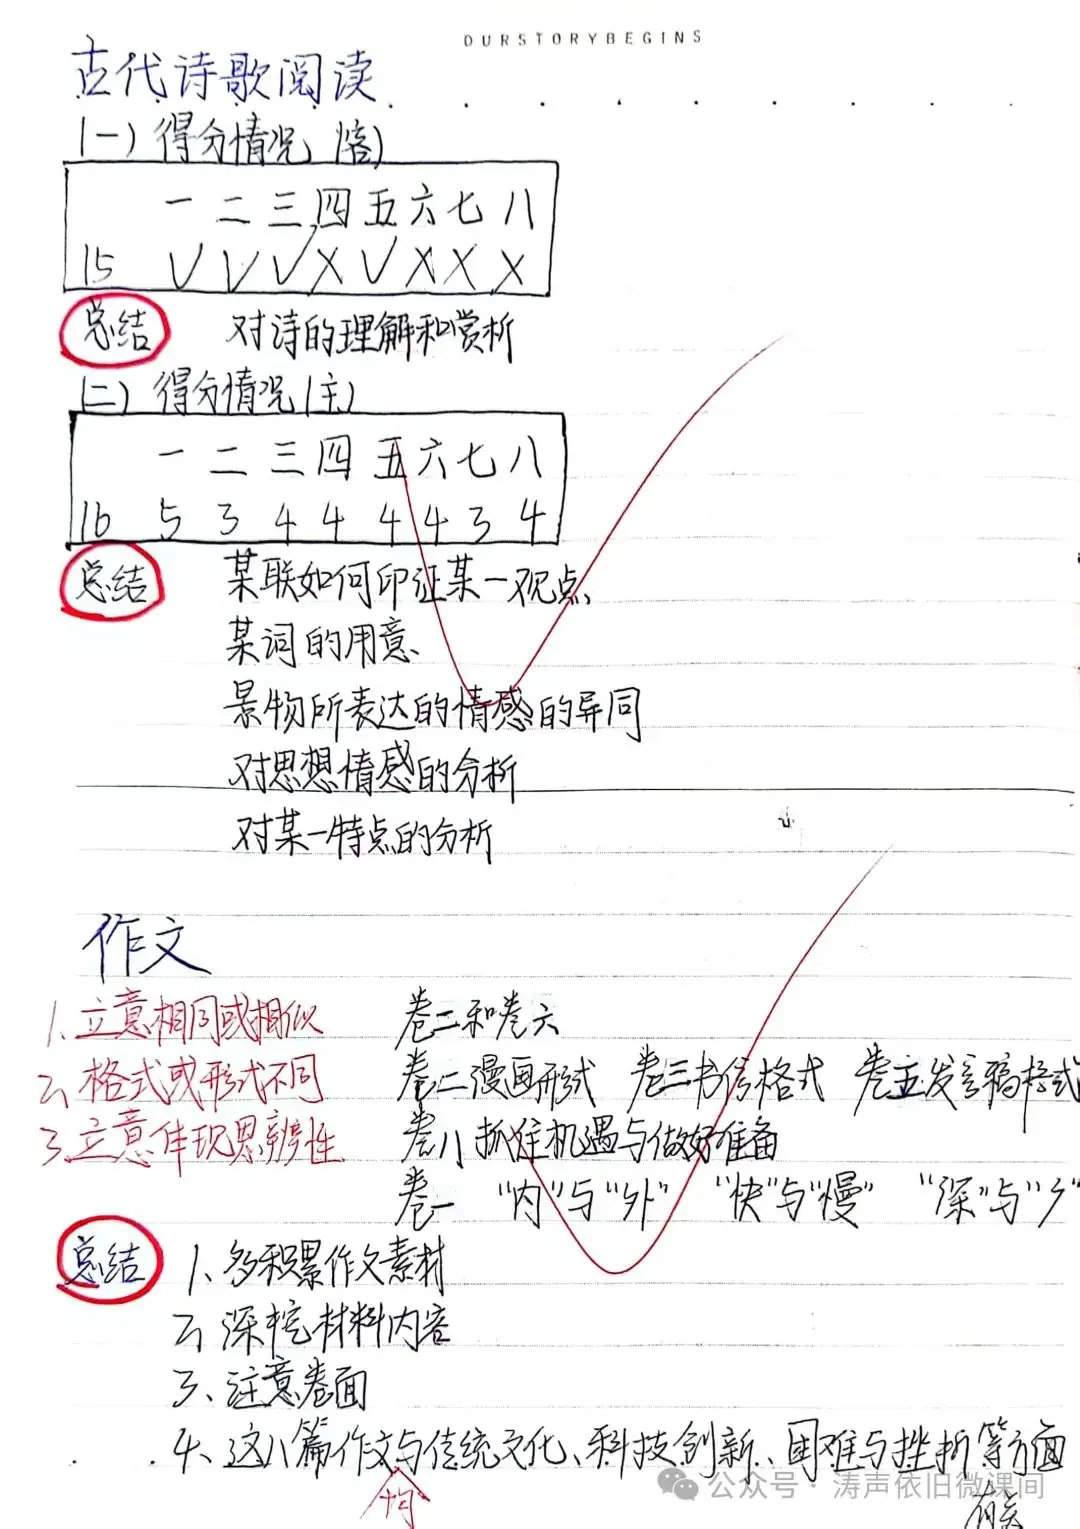 OURSTORYBEGINS
古代诗歌阅读
(一) 得分情况 (客)
一 二 三 四 五 六 七 八
15 √ √ √ × √ × × ×
总结 对诗的理解和赏析
(二) 得分情况 (主)
一 二 三 四 五 六 七 八
16 5 3 4 4 4 4 3 4
总结 某联如何印证某一观点
某词的用意
景物所表达的情感的异同
对思想情感的分析
对某一特点的分析
作文
1、立意相同或相似 卷二和卷六
2、格式或形式不同 卷二漫画形式 卷三书信格式 卷五发言稿格式
3、立意体现思辨性 卷八抓住机遇与做好准备
卷一 "内"与"外" "快"与"慢" "深"与"
总结 1、多积累作文素材
2、深挖材料内容
3、注意卷面
4、这八篇作文均与传统文化、科技创新、困难与挫折等方面
有关
公众号·涛声依旧微课间